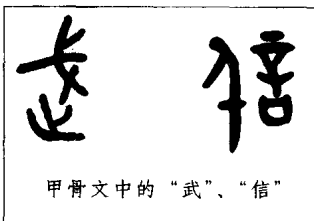 武 信
甲骨文中的“武”、“信”